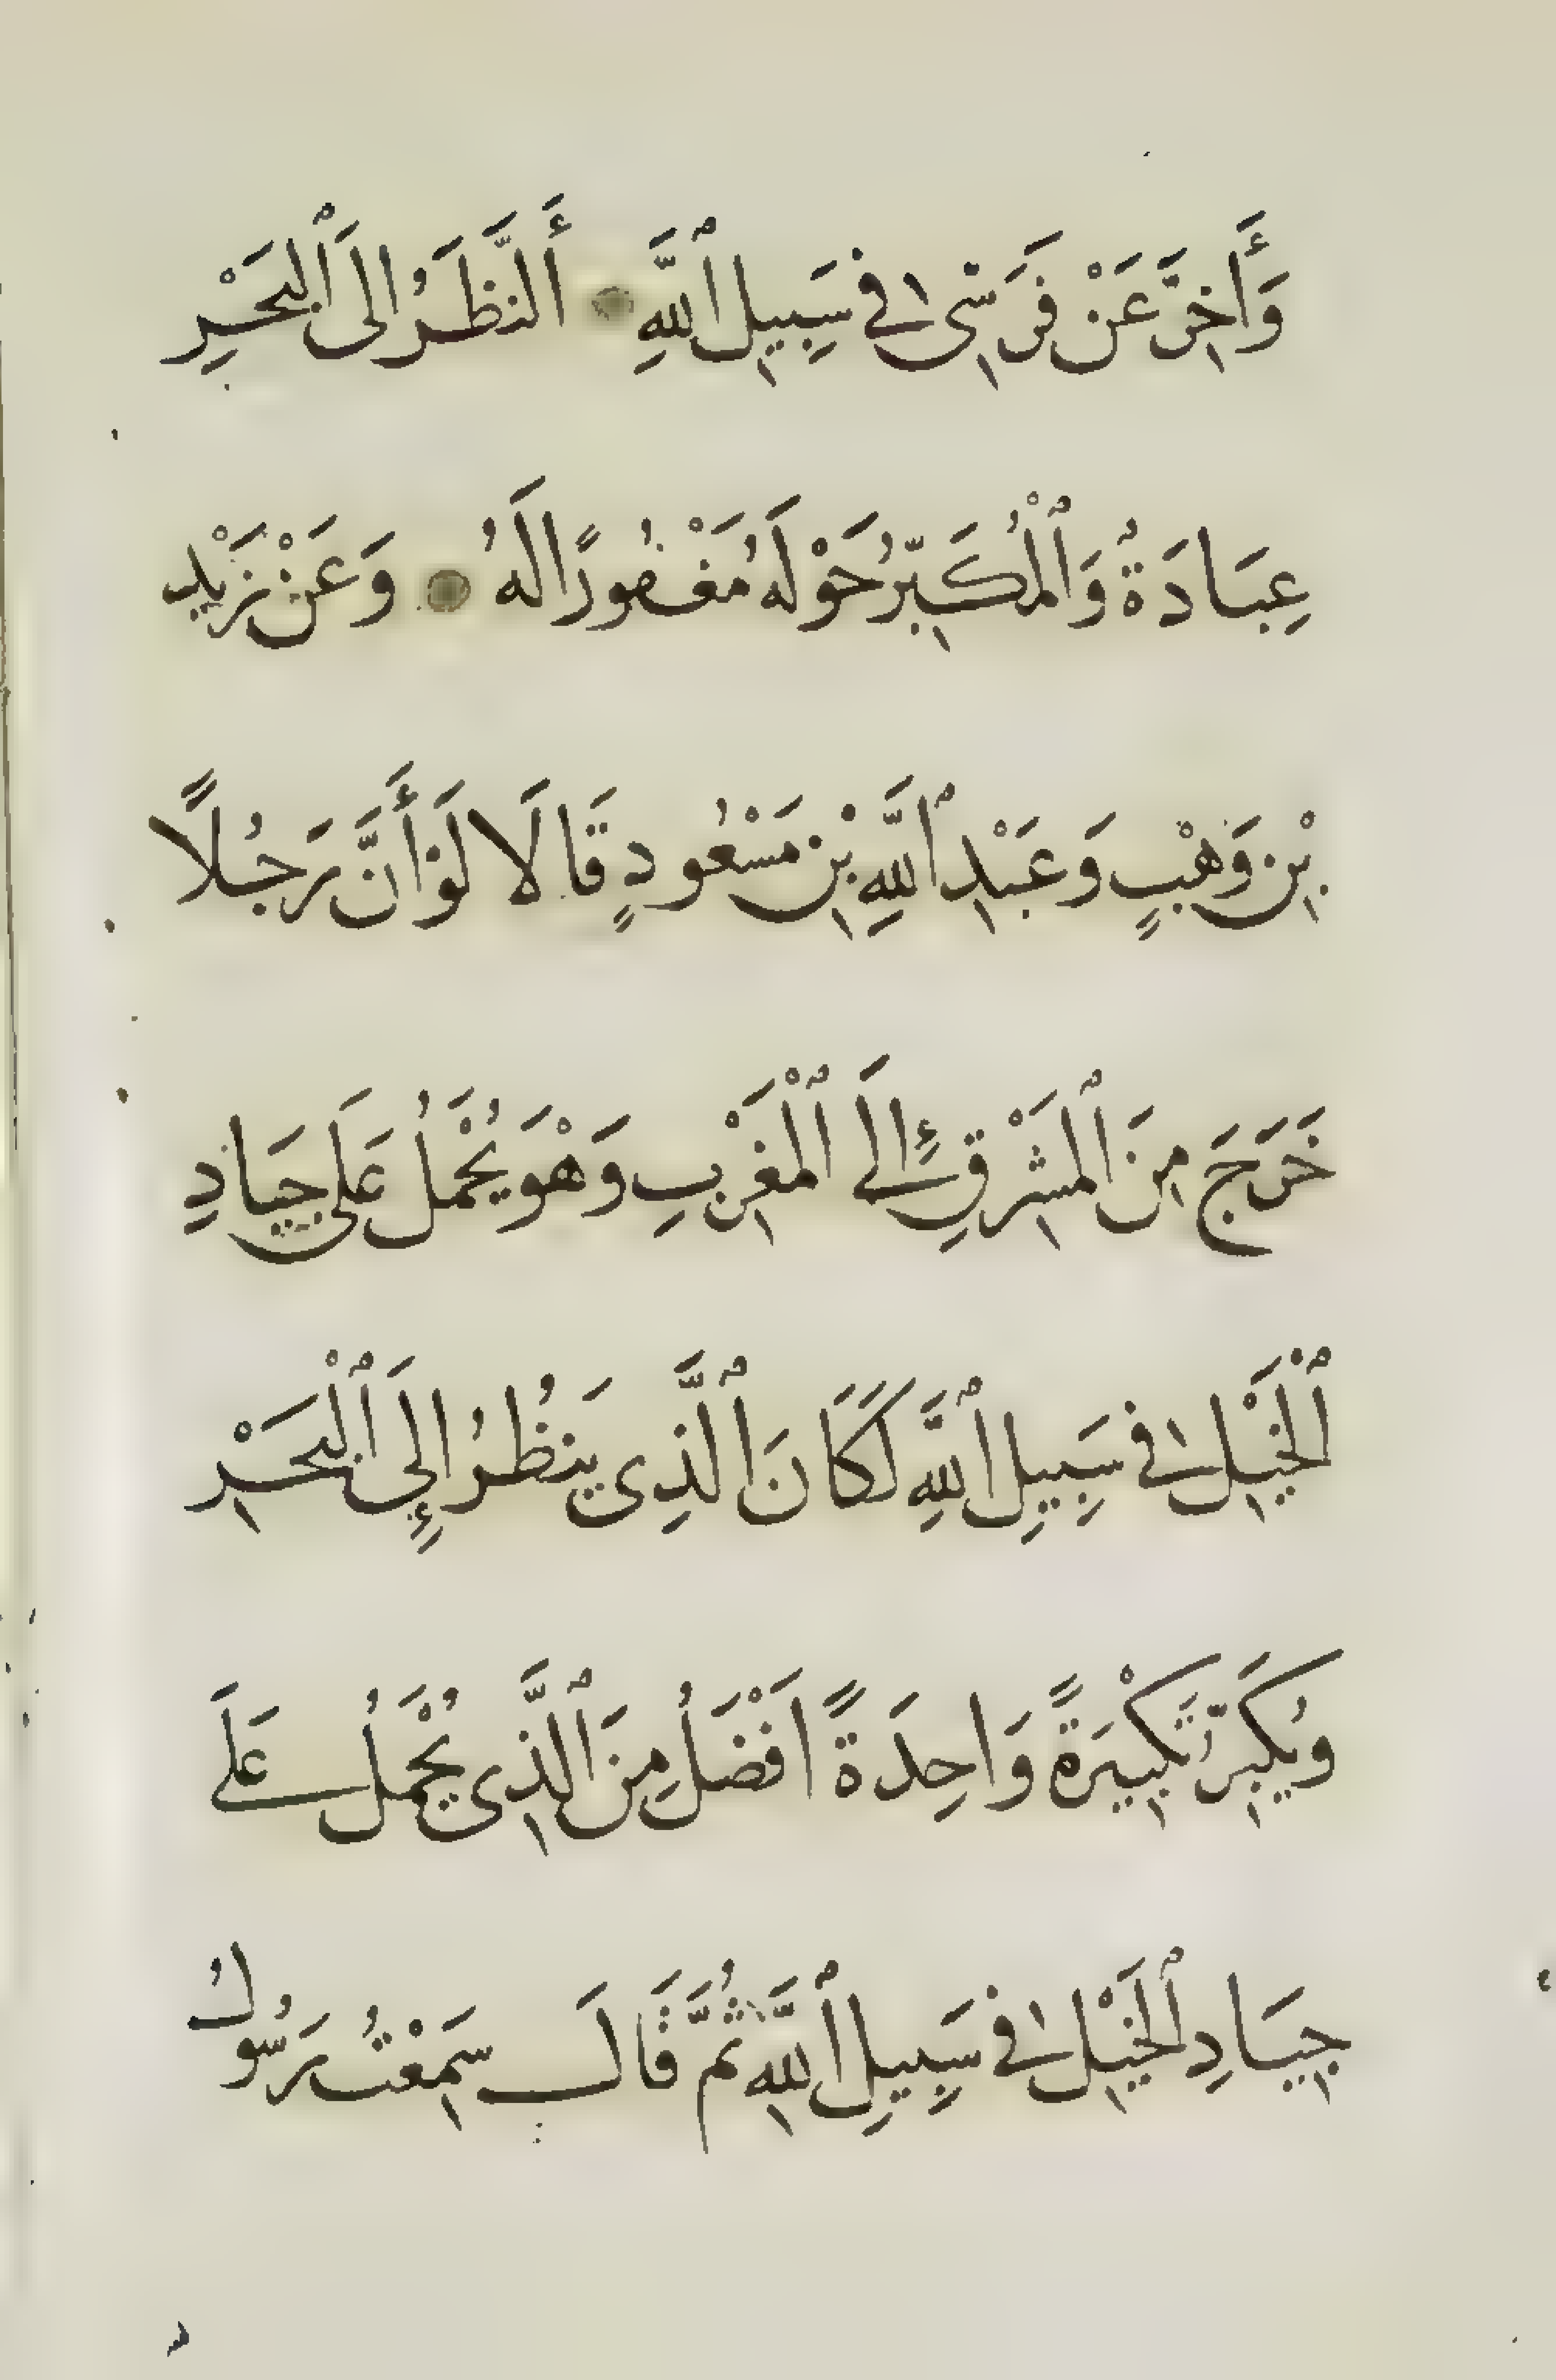 وَأَخِرَّ عَنْ فَرَسِى فِى سَبِيلِ ٱللَّهِ ۞ أَلنَّظَرُ الىَ ٱلْبَحْرِ
عِبَادَةٌ وَٱلْمُكَبِّرُ حَوْلَهُ مَغْفُورًا لَهُ ۞ وَعَنْ زَيْدِ
بْنِ وَهْبٍ وَعَبْدِ ٱللَّهِ بْنِ مَسْعُودٍ قَالَا لَوْ أَنَّ رَجُلًا
خَرَجَ مِنَ ٱلْمَشْرِقِ إِلَى ٱلْمَغْرِبِ وَهْوَ يُحْمَلُ عَلَى جِيَادِ
ٱلْخَيْلِ فِى سَبِيلِ ٱللَّهِ لَكَانَ ٱلَّذِى يَنْظُرُ إِلَى ٱلْبَحْرِ
وَيُكَبِّرُ تَكْبِيرَةً وَاحِدَةً اَفْضَلُ مِنَ ٱلَّذِى يُحْمَلُ عَلَى
جِيَادِ ٱلْخَيْلِ فِى سَبِيلِ ٱللَّهِ ثُمَّ قَالَ سَمِعْتُ رَسُولَ